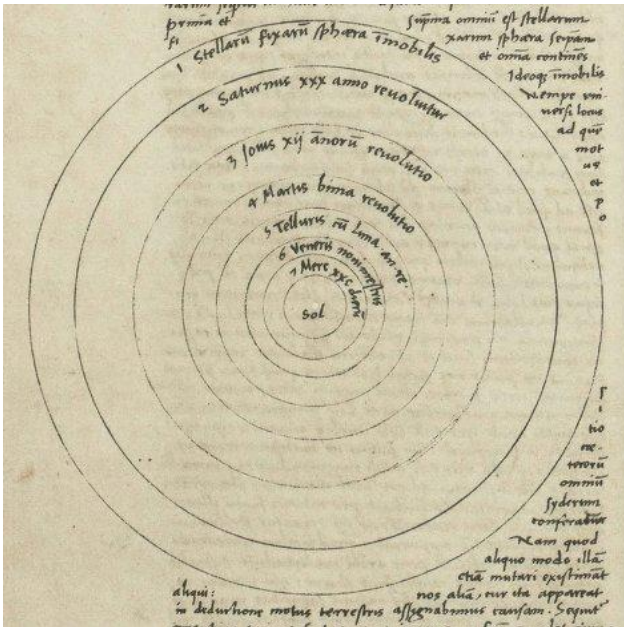 prima et suprema omniū est stellarum
fixarum sphæra seipsam
et omnia continēs
Ideoq; īmobilis
Nempe vni-
versi locus
ad quē
mot
us
et
p
o
1 Stellarū fixarū sphæra īmobilis
2 Saturnus xxx anno revoluitur
3 Jouis xij ānorū reuolutio
4 Martis bima reuolutio
5 Telluris cū Luna an. re.
6 Veneris nonimestris
7 Merc xxc dierū
Sol
s
i
tio
cæ-
terorū
omniū
syderum
conferatur
Nam quod
aliquo modo illā
etiā mutari existimāt
aliqui: nos aliā, cur ita appareat
in deductione motus terrestris assignabimus causam. Sequit